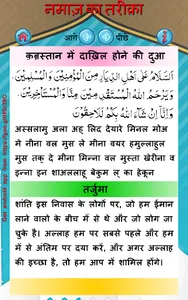 नमाज़ का तरीक़ा
आगे पीछे
क़ब्रस्तान में दाख़िल होने की दुआ
اَلسَّلَامُ عَلٰى اَهْلِ الدِّيَارِ مِنَ الْمُؤْمِنِيْنَ وَالْمُسْلِمِيْنَ
وَيَرْحَمُ اللّٰهُ الْمُسْتَقْدِمِيْنَ مِنَّا وَالْمُسْتَأْخِرِيْنَ
وَاِنَّا اِنْ شَاءَ اللّٰهُ بِكُمْ لَلَاحِقُوْنَ
अस्सलामु अला अह् लिद देयारे मिनल मोअ
मे नीना वल मुस ले मीना वयर हमुल्लाहुल
मुस तक़ दे मीना मिन्ना वल मुस्ता खेरीना व
इन्ना इन शाअल्लाहु बेकुम ल का हेकून
तर्जुमा
शांति इस निवास के लोगों पर, जो हम ईमान
लाने वालो के बीच में से थे और जो लोग जा
चुके है। अल्लाह हम पर सबसे पहले और हम
में से अंतिम पर दया करें, और अगर अल्लाह
की इच्छा है, तो हम आप में शामिल होंगे।